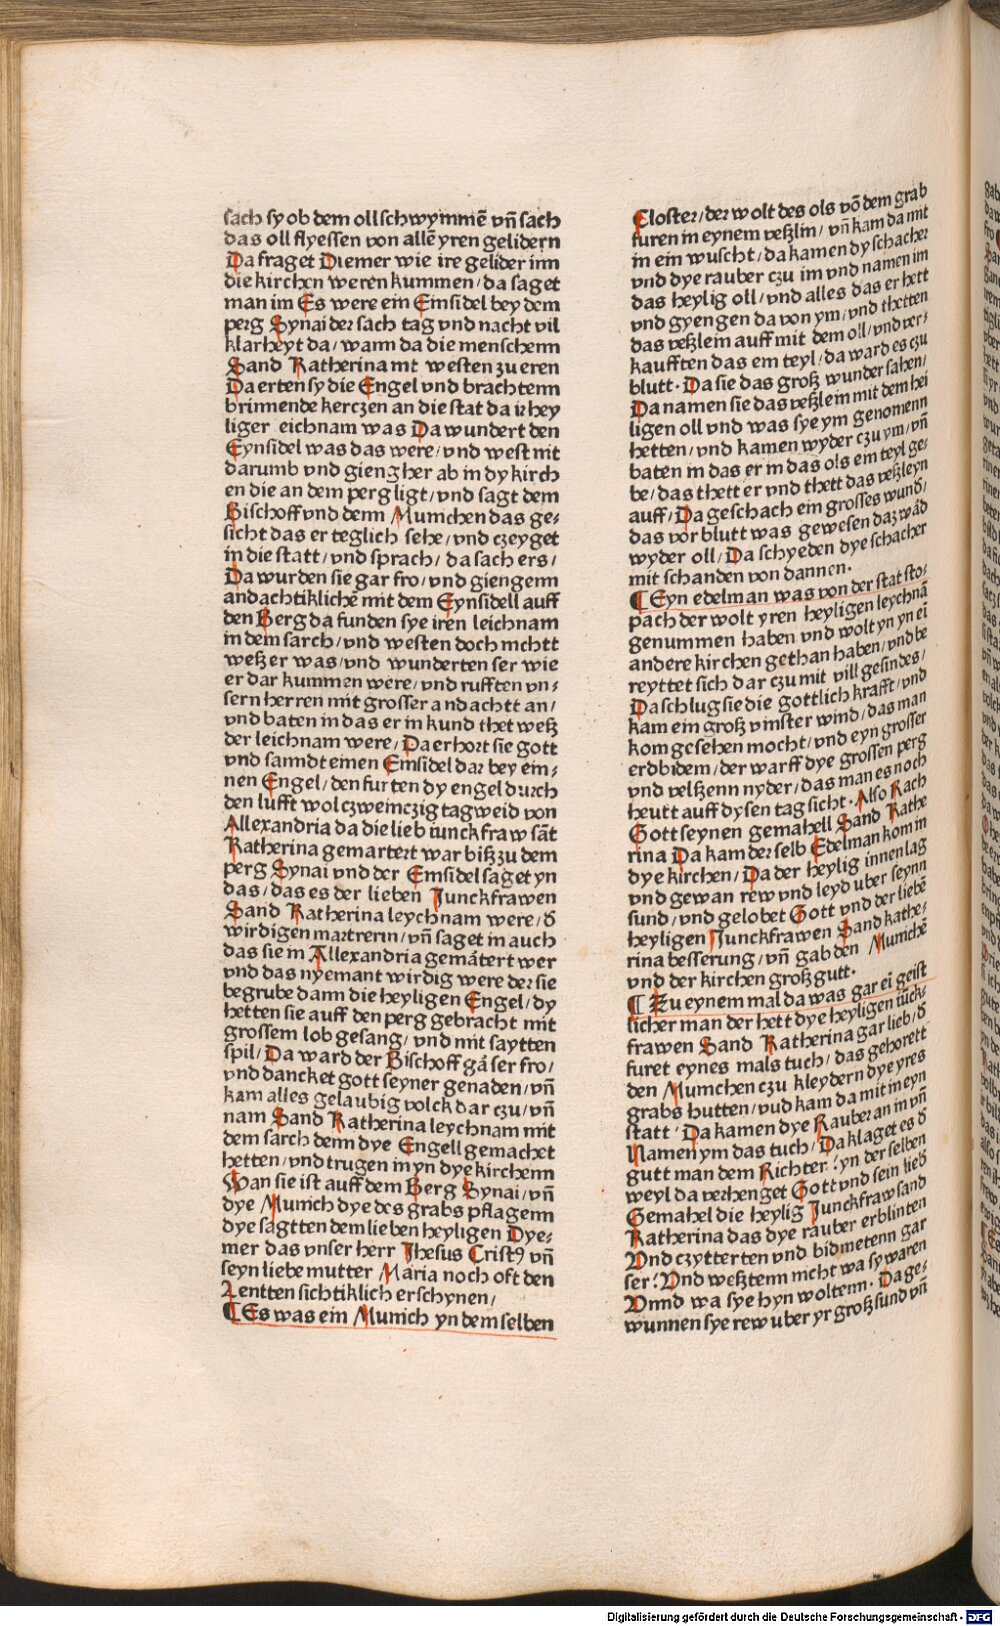 sach sy ob dem oll schwymmē vn̄ sach
das oll flyessen von allē yren gelidern
Da fraget Diemer wie ire gelider inn
die kirchen weren kummen/ da saget
man im Es were ein Einsidel bey dem
perg Synai der sach tag vnd nacht vil
klarheyt da/ wann da die menschenn
Sand Katherina nit westen zu eren
Da erten sy die Engel vnd brachtenn
brinnende kerczen an die stat da ir hey
liger leichnam was Da wundert den
Eynsidel was das were/ vnd west nit
darumb vnd gieng her ab in dy kirch
en die an dem perg ligt/ vnd sagt dem
Bischoff vnd denn Munichen das ge⸗
sicht das er teglich sehe/ vnd czeyget
in die statt/ vnd sprach/ da sach ers/
Da wurden sie gar fro/ vnd giengenn
andachtiklichē mit dem Eynsidell auff
den Berg da funden sye iren leichnam
in dem sarch/ vnd westen doch nichtt
weß er was/ vnd wunderten ser wie
er dar kummen were/ vnd rufften vn⸗
sern herren mit grosser andachtt an/
vnd baten in das er in kund thet weß
der leichnam were/ Da erhort sie gott
vnd sanndt einen Einsidel dar bey ein⸗
nen Engel/ den furten dy engel durch
den lufft wol czweinczig tagweid von
Allexandria da die lieb iunckfraw sāt
Katherina gemartert war biß zu dem
perg Synai vnd der Einsidel saget yn
das/ das es der lieben Junckfrawen
Sand Katherina leychnam were/ d̄
wirdigen martrerin/ vn̄ saget in auch
das sie in Allexandria gemātert wer
vnd das nyemant wirdig were der sie
begrube dann die heyligen Engel/ dy
hetten sie auff den perg gebracht mit
grossem lob gesang/ vnd mit saytten
spil/ Da ward der Bischoff gā ser fro/
vnd dancket gott seyner genaden/ vn̄
kam alles gelaubig volck dar czu/ vn̄
nam Sand Katherina leychnam mit
dem sarch denn dye Engell gemachet
hetten/ vnd trugen in yn dye kirchenn
Wan sie ist auff dem Berg Synai/ vn̄
dye Munich dye des grabs pflagenn
dye sagtten dem lieben heyligen Dye⸗
mer das vnser herr Jhesus Cristꝰ vn̄
seyn liebe mutter Maria noch oft den
Lentten sichtiklich erschynen/
¶ Es was ein Munich yn dem selben
Closter/ der wolt des ols vō dem grab
furen in eynem veßlin/ vn̄ kam da mit
in ein wuscht/ da kamen dy schacher
vnd dye rauber czu im vnd namen im
das heylig oll/ vnd alles das er hett
vnd gyengen da von ym/ vnd thetten
das veßlein auff mit dem oll/ vnd ver⸗
kaufften das ein teyl/ da ward es czu
blutt. Da sie das groß wunder sahen/
Da namen sie das veßlein mit dem hei
ligen oll vnd was sye ym genomenn
hetten/ vnd kamen wyder czu ym/ vn̄
baten in das er in das ols ein teyl ge⸗
be/ das thett er vnd thett das veßleyn
auff/ Da geschach ein grosses wund/
das vor blutt was gewesen daz wād
wyder oll/ Da schyeden dye schacher
mit schanden von dannen.
¶ Eyn edelman was von der stat sto⸗
pach der wolt yren heyligen leychnā
genummen haben vnd wolt yn yn eī
andere kirchen gethan haben/ vnd be
reyttet sich dar czu mit vill gesindes/
Da schlug sie die gottlich krafft/ vnd
kam ein groß vinster wind/ das man
kom gesehen mocht/ vnd eyn grosser
erdbidem/ der warff dye grossen perg
vnd velßenn nyder/ das man es noch
heutt auff dysen tag sicht. Also Rach
Gott seynen gemahell Sand Kathe
rina Da kam der selb Edelman kom in
dye kirchen/ Da der heylig innen lag
vnd gewan rew vnd leyd vber seynn
sund/ vnd gelobet Gott vnd der liebē
heyligen Junckfrawen Sand kathe⸗
rina besserung/ vn̄ gab den Munichē
vnd der kirchen groß gutt.
¶ Zu eynem mal da was gar eī geist
licher man der hett dye heyligen iūck⸗
frawen Sand Katherina gar lieb/ d̄
furet eynes mals tuch/ das gehorett
den Munichen czu kleydern dye yres
grabs hutten/ vud kam da mit in eyn
statt. Da kamen dye Rauber an in vn̄
Namen ym das tuch/ Da klaget es d̄
gutt man dem Richter. yn der selben
weyl da verhenget Gott vnd sein lieb
Gemahel die heylig Junckfraw sand
Katherina das dye rauber erblinten
Vnd czytterten vnd bidmetenn gar
ser. Vnd weßtenn nicht wa sy waren
Vnnd wa sye hyn woltenn. Da ge⸗
wunnen sye rew vber yr groß sund vn̄
Digitalisierung gefördert durch die Deutsche Forschungsgemeinschaft - DFG